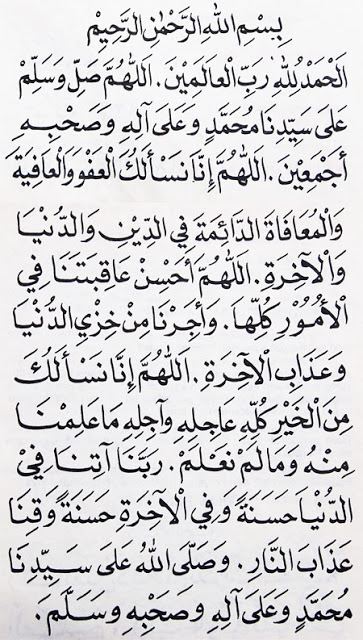 بِسْمِ اللهِ الرَّحْمٰنِ الرَّحِيْمِ
اَلْحَمْدُ لِلّٰهِ رَبِّ الْعَالَمِيْنَ. اَللّٰهُمَّ صَلِّ وَسَلِّمْ
عَلَى سَيِّدِنَا مُحَمَّدٍ وَعَلَى آلِهِ وَصَحْبِهِ
أَجْمَعِيْنَ. اَللّٰهُمَّ إِنَّا نَسْأَلُكَ الْعَفْوَ وَالْعَافِيَةَ
وَالْمُعَافَاةَ الدَّائِمَةَ فِي الدِّيْنِ وَالدُّنْيَا
وَالْآخِرَةِ. اَللّٰهُمَّ أَحْسِنْ عَاقِبَتَنَا فِي
الْأُمُوْرِ كُلِّهَا. وَأَجِرْنَا مِنْ خِزْيِ الدُّنْيَا
وَعَذَابِ الْآخِرَةِ. اَللّٰهُمَّ إِنَّا نَسْأَلُكَ
مِنَ الْخَيْرِ كُلِّهِ عَاجِلِهِ وَآجِلِهِ مَا عَلِمْنَا
مِنْهُ وَمَا لَمْ نَعْلَمْ. رَبَّنَا آتِنَا فِيْ
الدُّنْيَا حَسَنَةً وَفِي الْآخِرَةِ حَسَنَةً وَقِنَا
عَذَابَ النَّارِ. وَصَلَّى اللهُ عَلَى سَيِّدِنَا
مُحَمَّدٍ وَعَلَى آلِهِ وَصَحْبِهِ وَسَلَّمَ.